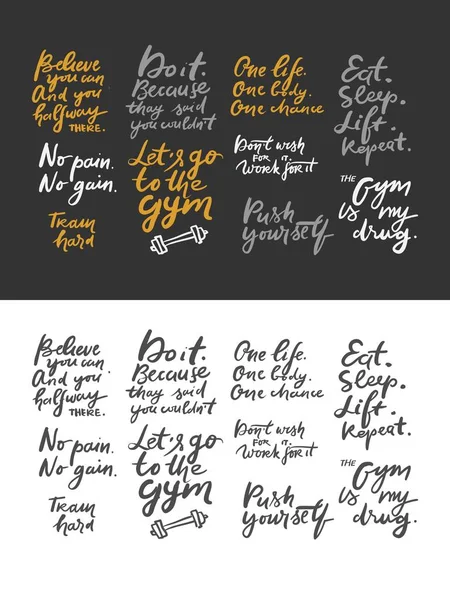 Believe
you can
And you
halfway
THERE.
No pain.
No gain.
Train
hard
Do it.
Because
thay said
you wouldn't
Let's go
to the
gym
One life.
One body.
One chance
Don't wish
FOR IT.
Work for it
Push
yourself
Eat.
Sleep.
Lift.
Repeat.
THE Gym
is my
drug.
Believe
you can
And you
halfway
THERE.
No pain.
No gain.
Train
hard
Do it.
Because
thay said
you wouldn't
Let's go
to the
gym
One life.
One body.
One chance
Don't wish
FOR IT.
Work for it
Push
yourself
Eat.
Sleep.
Lift.
Repeat.
THE Gym
is my
drug.